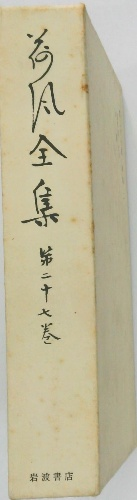 荷風全集
第二十七巻
岩波書店